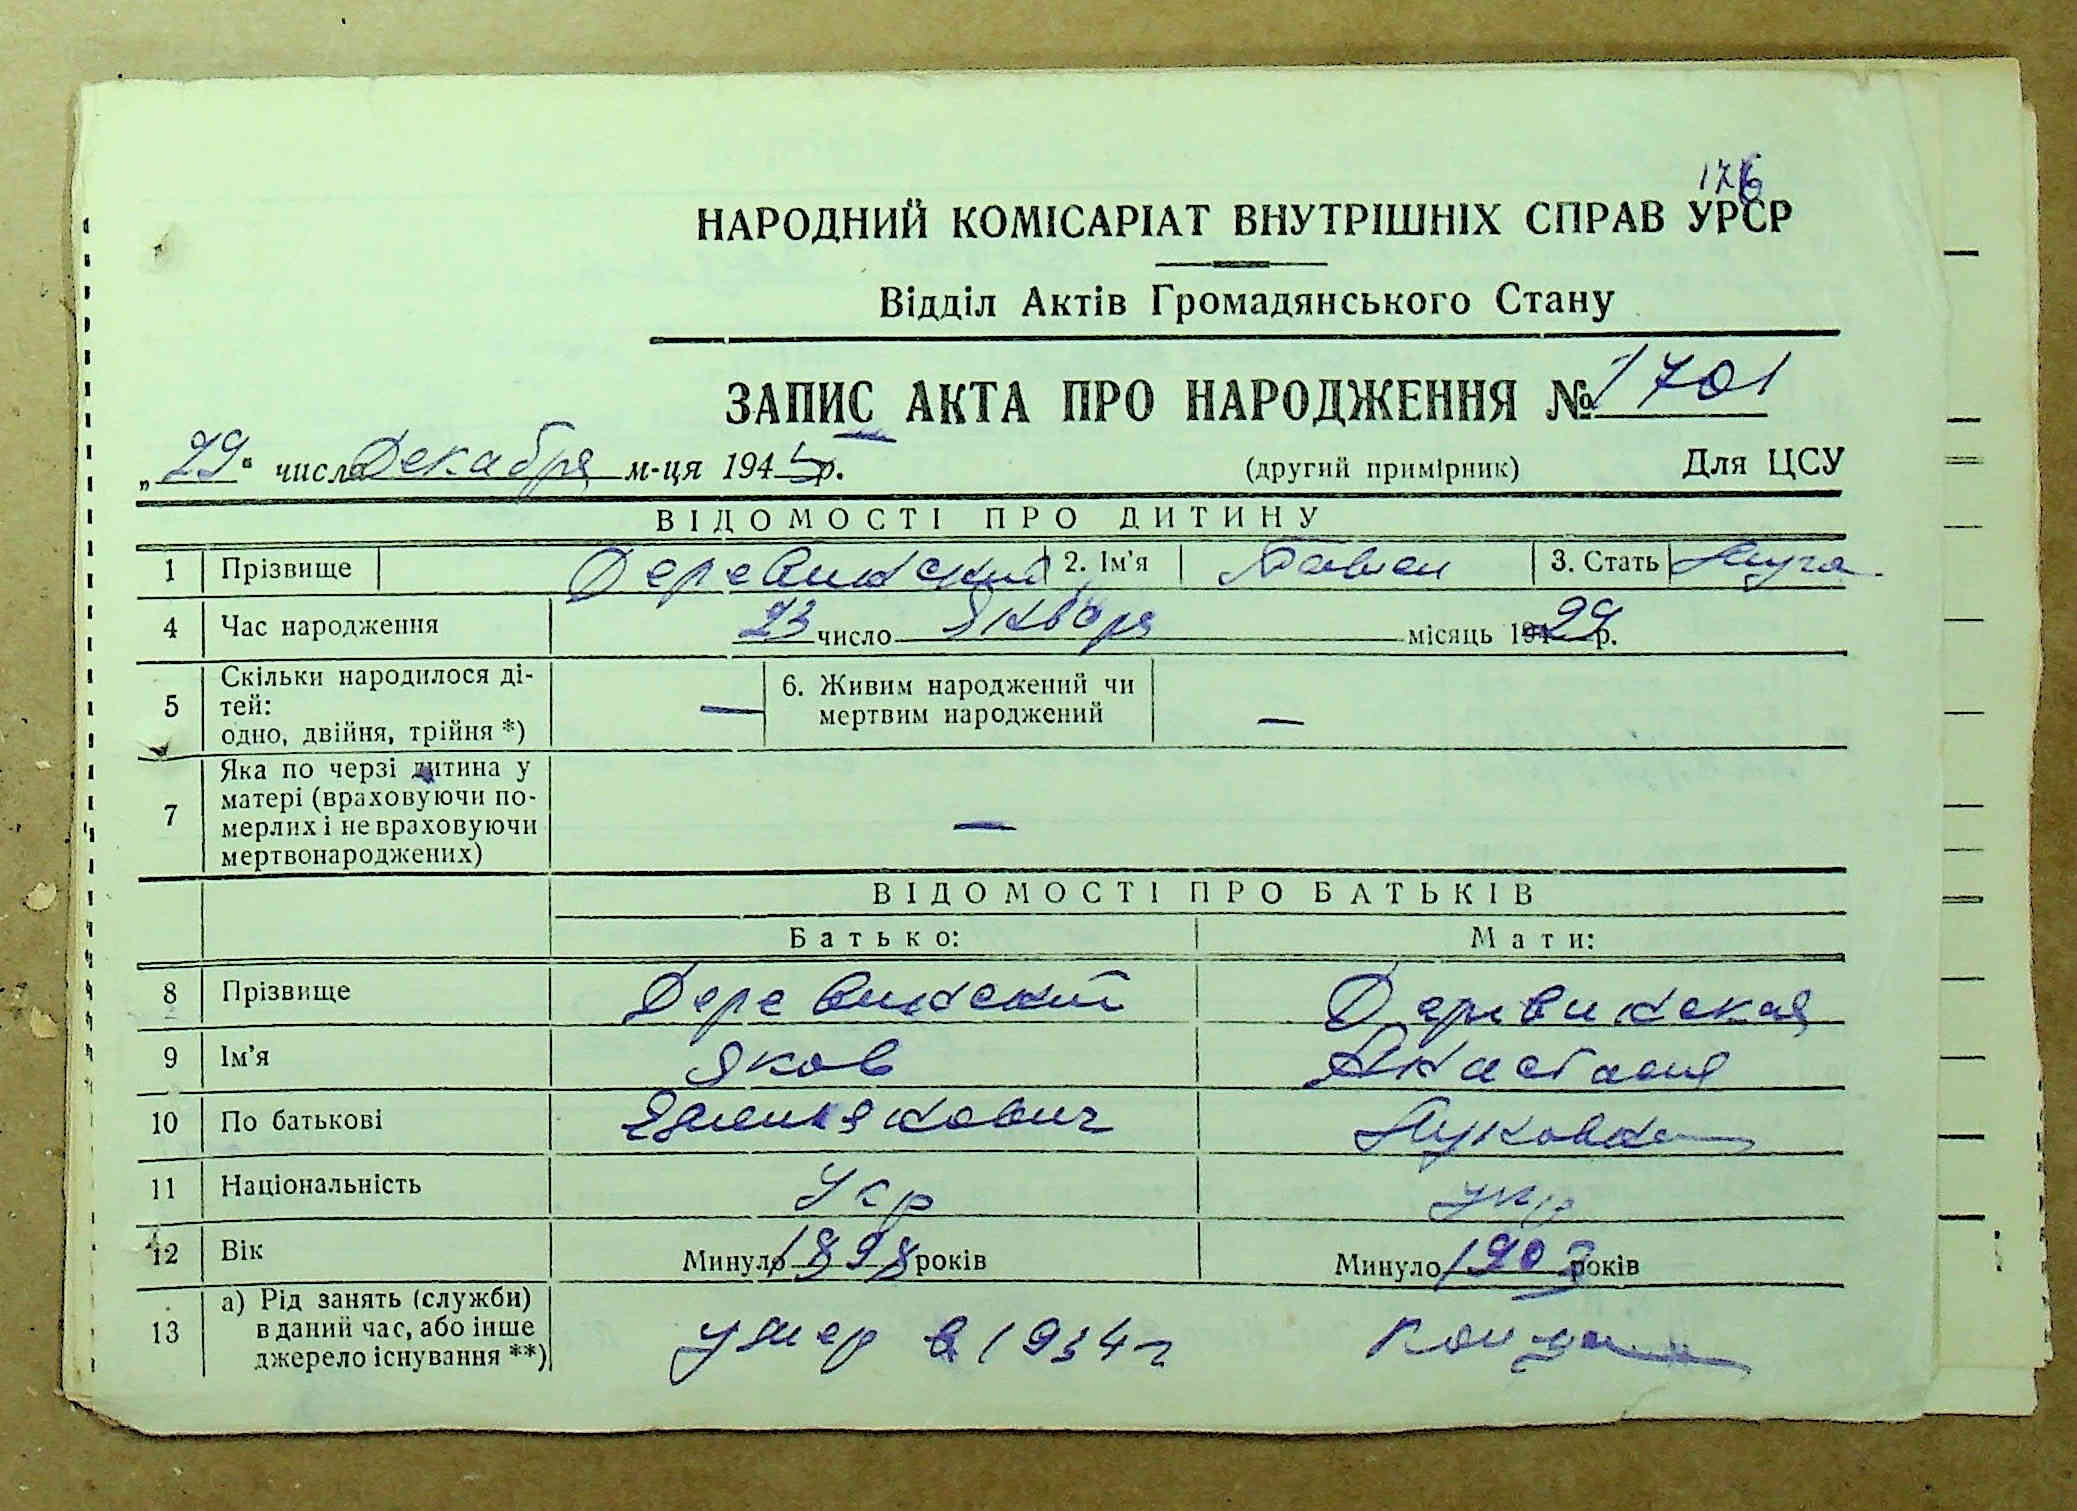 176
НАРОДНИЙ КОМІСАРІАТ ВНУТРІШНІХ СПРАВ УРСР
Відділ Актів Громадянського Стану
ЗАПИС АКТА ПРО НАРОДЖЕННЯ № 1701
„29" число Декабря м-ця 1945 р. (другий примірник) Для ЦСУ
ВІДОМОСТІ ПРО ДИТИНУ
1 Прізвище Деревинский 2. Ім'я Павел 3. Стать Муж
4 Час народження 23 число Января місяць 1929 р.
5 Скільки народилося ді-
тей:
одно, двійня, трійня *) — 6. Живим народжений чи
мертвим народжений —
7 Яка по черзі дитина у
матері (враховуючи по-
мерлих і не враховуючи
мертвонароджених) —
ВІДОМОСТІ ПРО БАТЬКІВ
Батько: Мати:
8 Прізвище Деревинский Деривинская
9 Ім'я Яков Анастасия
10 По батькові Емельянович
11 Національність Укр укр
12 Вік Минуло 1898 років Минуло 1903 років
13 а) Рід занять (служби)
в даний час, або інше
джерело існування **) умер в 1934 г